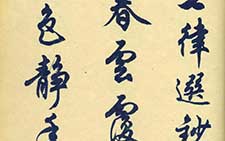 律選鈔
春雲霞
色靜